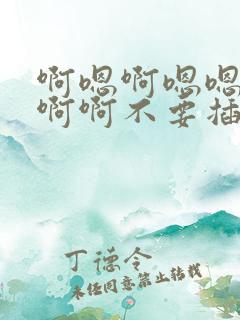 啊嗯啊嗯嗯
啊啊不要插
丁德令
未经同意禁止转载